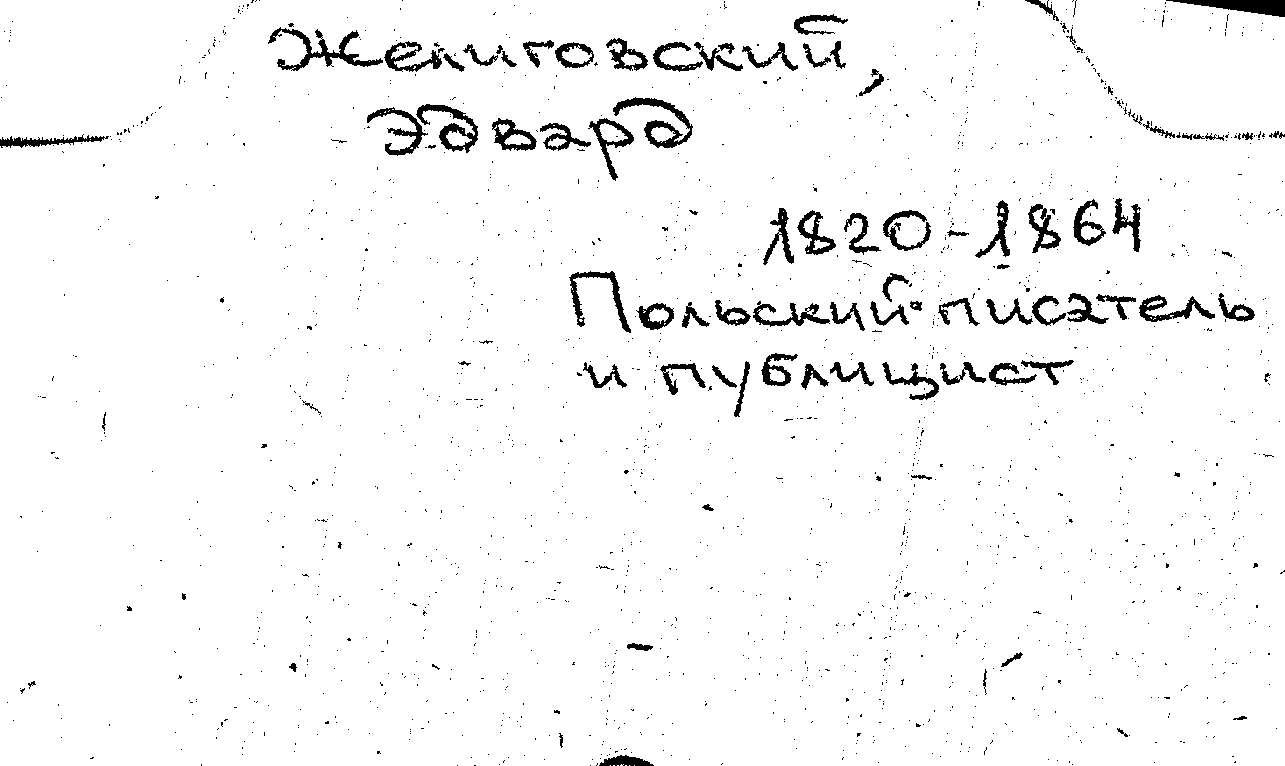 Желиговский,
Эдвард
1820-1864
Польский писатель
и публицист